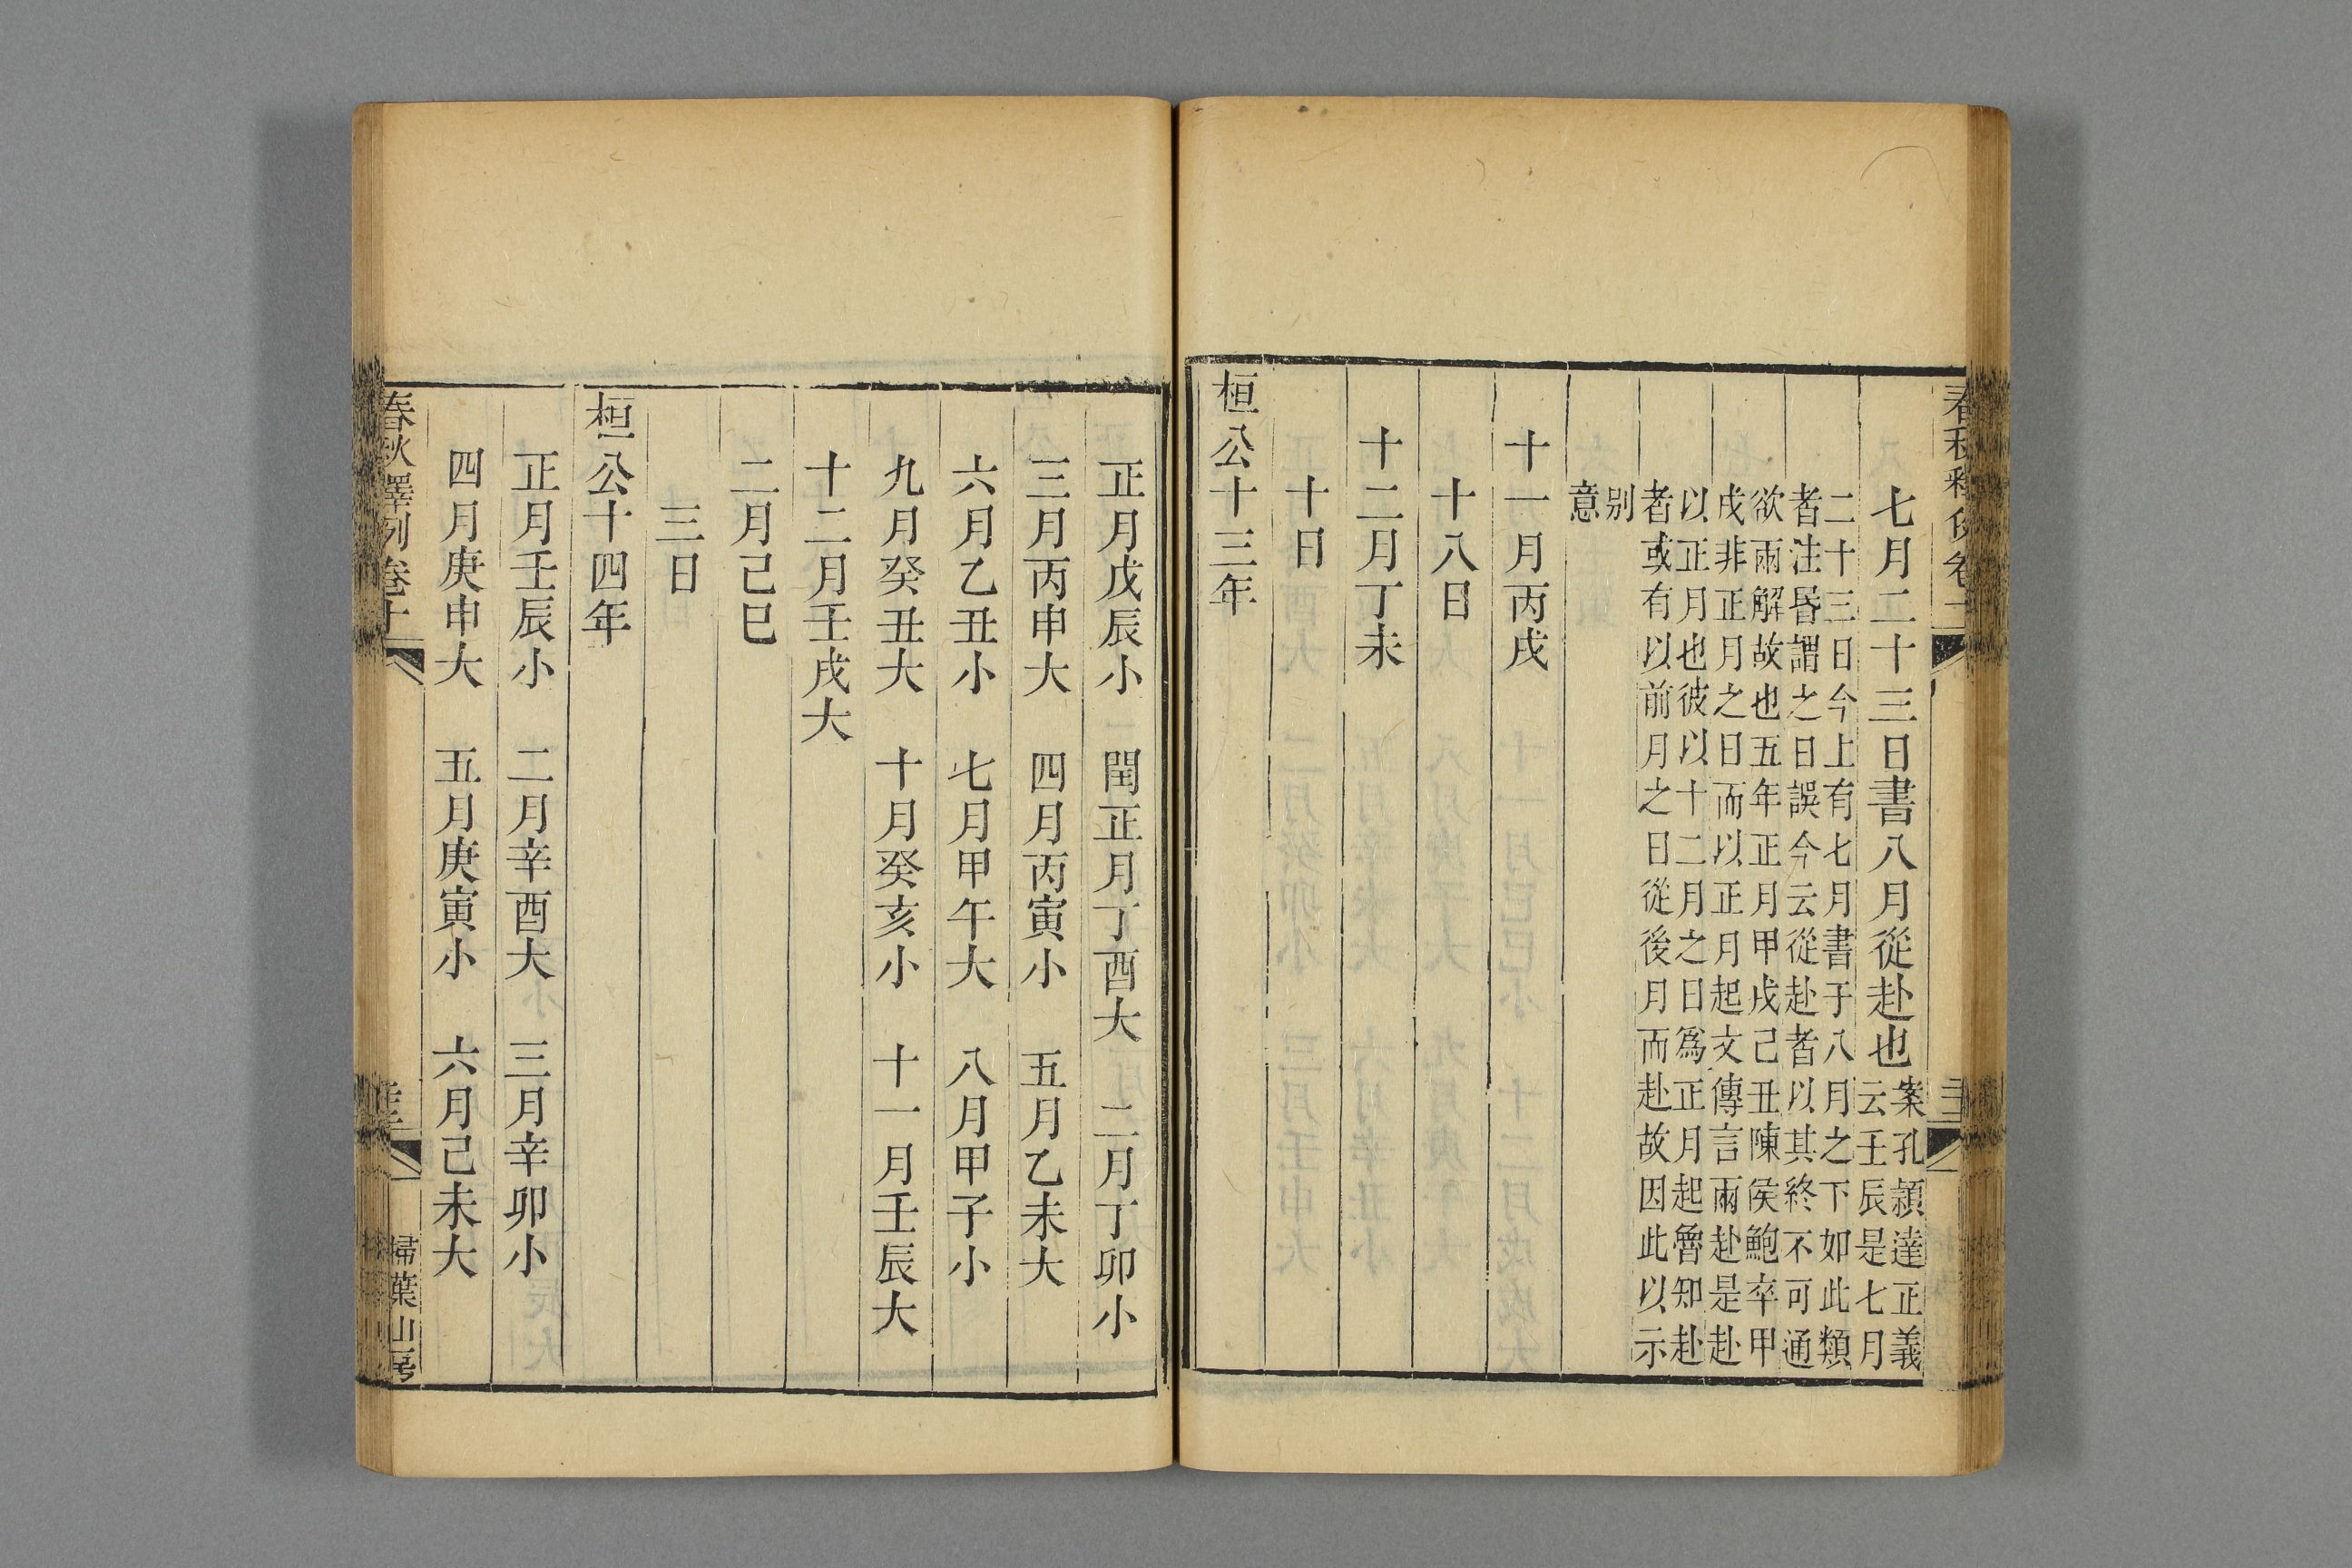 春秋釋例卷十
七月二十三日書八月從赴也案孔穎達正義
云壬辰是七月
二十三日今上有七月書于八月之下如此類
者注昏謂之日誤今云從赴者以其終不可通
欲兩解故也五年正月甲戌己丑陳侯鮑卒甲
戌非正月之日而以正月起文傳言兩赴是赴
以正月也彼以十二月之日爲正月起魯知赴
者或有以前月之日從後月而赴故因此以示
别
意
十一月丙戌
十八日
十二月丁未
十日
桓公十三年
正月戊辰小 閏正月丁酉大 二月丁卯小
三月丙申大 四月丙寅小 五月乙未大
六月乙丑小 七月甲午大 八月甲子小
九月癸丑大 十月癸亥小 十一月壬辰大
十二月壬戌大
二月己巳
三日
桓公十四年
正月壬辰小 二月辛酉大 三月辛卯小
四月庚申大 五月庚寅小 六月己未大
春秋釋例卷十 掃葉山房